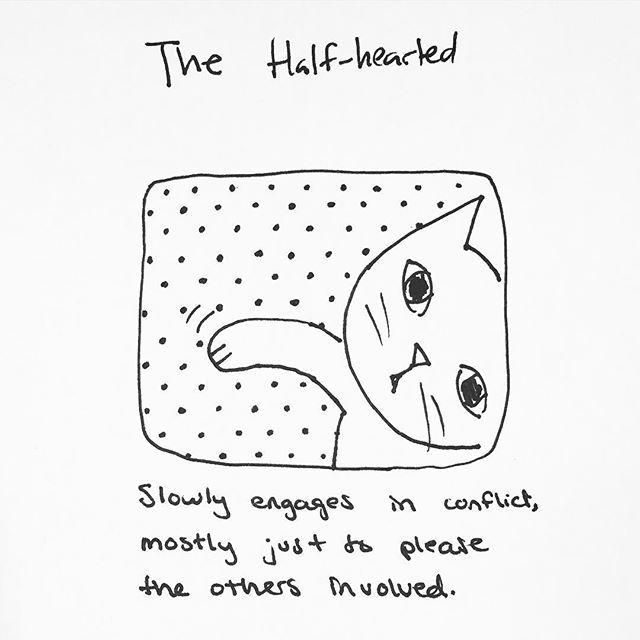 The Half-hearted
Slowly engages in conflict,
mostly just to please
the others involved.